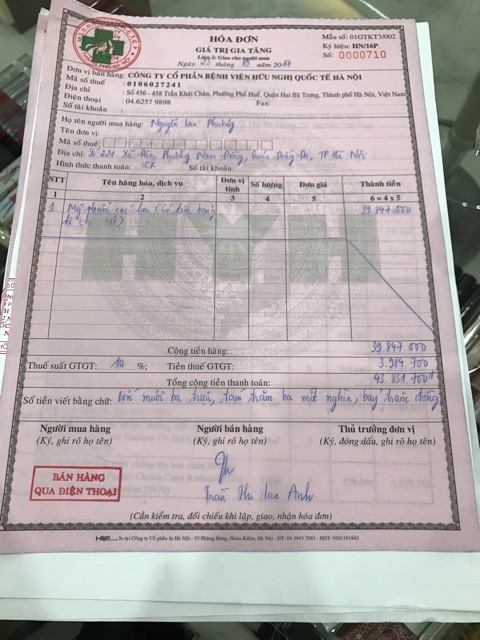 HÓA ĐƠN
GIÁ TRỊ GIA TĂNG
Liên 2: Giao cho người mua
Ngày 23 tháng 03 năm 2017
Mẫu số: 01GTKT3/002
Ký hiệu: HN/16P
Số: 0000710
Đơn vị bán hàng: CÔNG TY CỔ PHẦN BỆNH VIỆN HỮU NGHỊ QUỐC TẾ HÀ NỘI
Mã số thuế : 0106027241
Địa chỉ : Số 456 - 458 Trần Khát Chân, Phường Phố Huế, Quận Hai Bà Trưng, Thành phố Hà Nội, Việt Nam
Điện thoại : 04.6257 9898 Fax:
Số tài khoản :
Họ tên người mua hàng: Nguyễn Lan Phương
Tên đơn vị:
Mã số thuế:
Địa chỉ: Số 224 Xã Đàn, Phường Nam Đồng, Quận Đống Đa, TP Hà Nội
Hình thức thanh toán: CK Số tài khoản:
STT Tên hàng hóa, dịch vụ Đơn vị tính Số lượng Đơn giá Thành tiền
1 2 3 4 5 6 = 4 x 5
1 Mỹ phẩm các loại (Có kèm bảng 39.847.000
kê chi tiết)
Cộng tiền hàng: 39.847.000
Thuế suất GTGT: 10 %; Tiền thuế GTGT: 3.984.700
Tổng cộng tiền thanh toán: 43.831.700đ
Số tiền viết bằng chữ: Bốn mươi ba triệu, tám trăm ba mốt nghìn, bảy trăm đồng
Người mua hàng Người bán hàng Thủ trưởng đơn vị
(Ký, ghi rõ họ tên) (Ký, ghi rõ họ tên) (Ký, đóng dấu, ghi rõ họ tên)
BÁN HÀNG
QUA ĐIỆN THOẠI
Trần Thị Lan Anh
(Cần kiểm tra, đối chiếu khi lập, giao, nhận hóa đơn)
In tại Công ty Cổ phần In Hà Nội - 93 Phùng Hưng, Hoàn Kiếm, Hà Nội - ĐT: 04 3943 7063 - MST: 0101181842